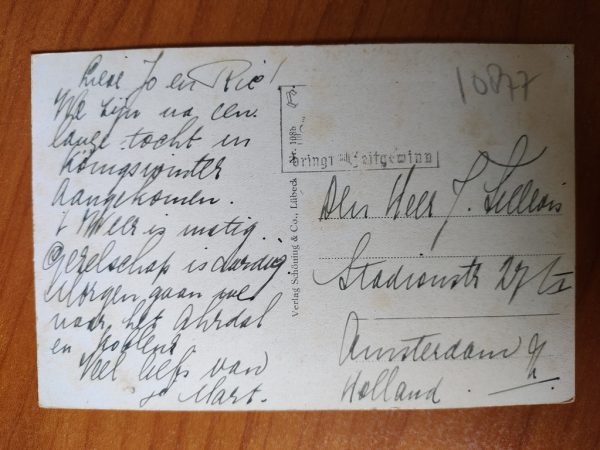 Lieve Jo en Rie!
We zijn na een
lange tocht in
Königswinter
aangekomen.
't Weer is matig.
Gezelschap is aardig
Morgen gaan we
naar het Ahrdal
en Koblenz
Veel liefs van
Mart.
10877
bringt Zeitgewinn
Verlag Schöning & Co., Lübeck
Nr. 108b
Den Heer J.
Stadionstr 27
Amsterdam
Holland